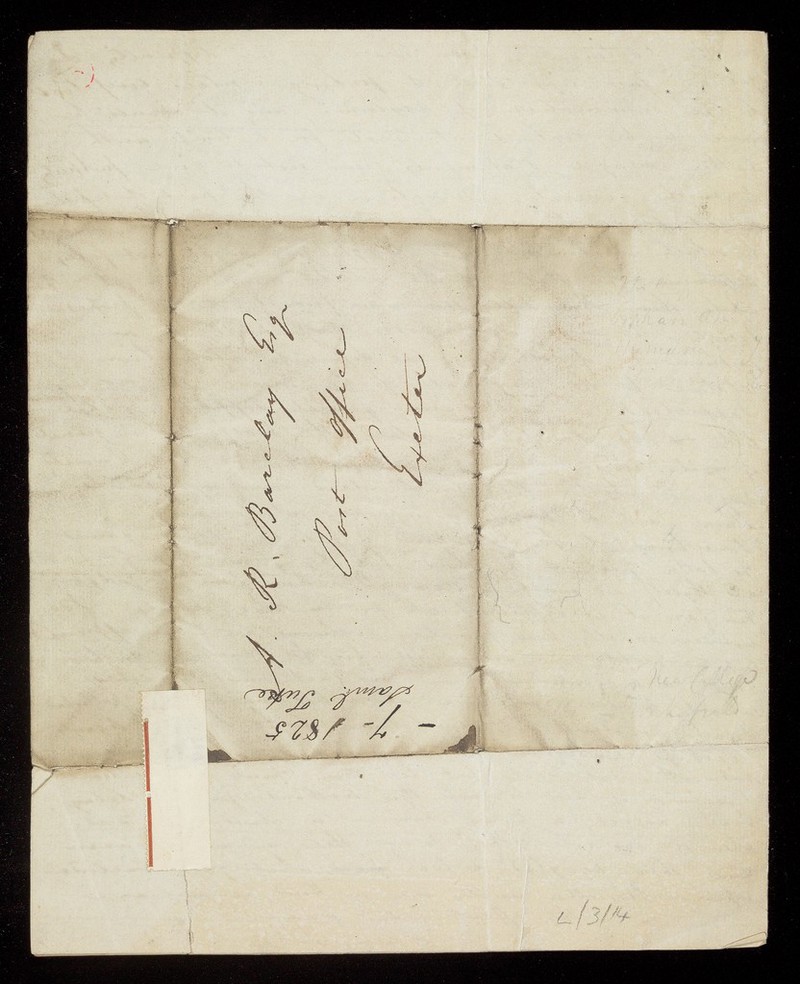 A. R. Barclay Esqr
Post Office
Exeter
– 7 – 1825
Saml. Tuke
L/3/14